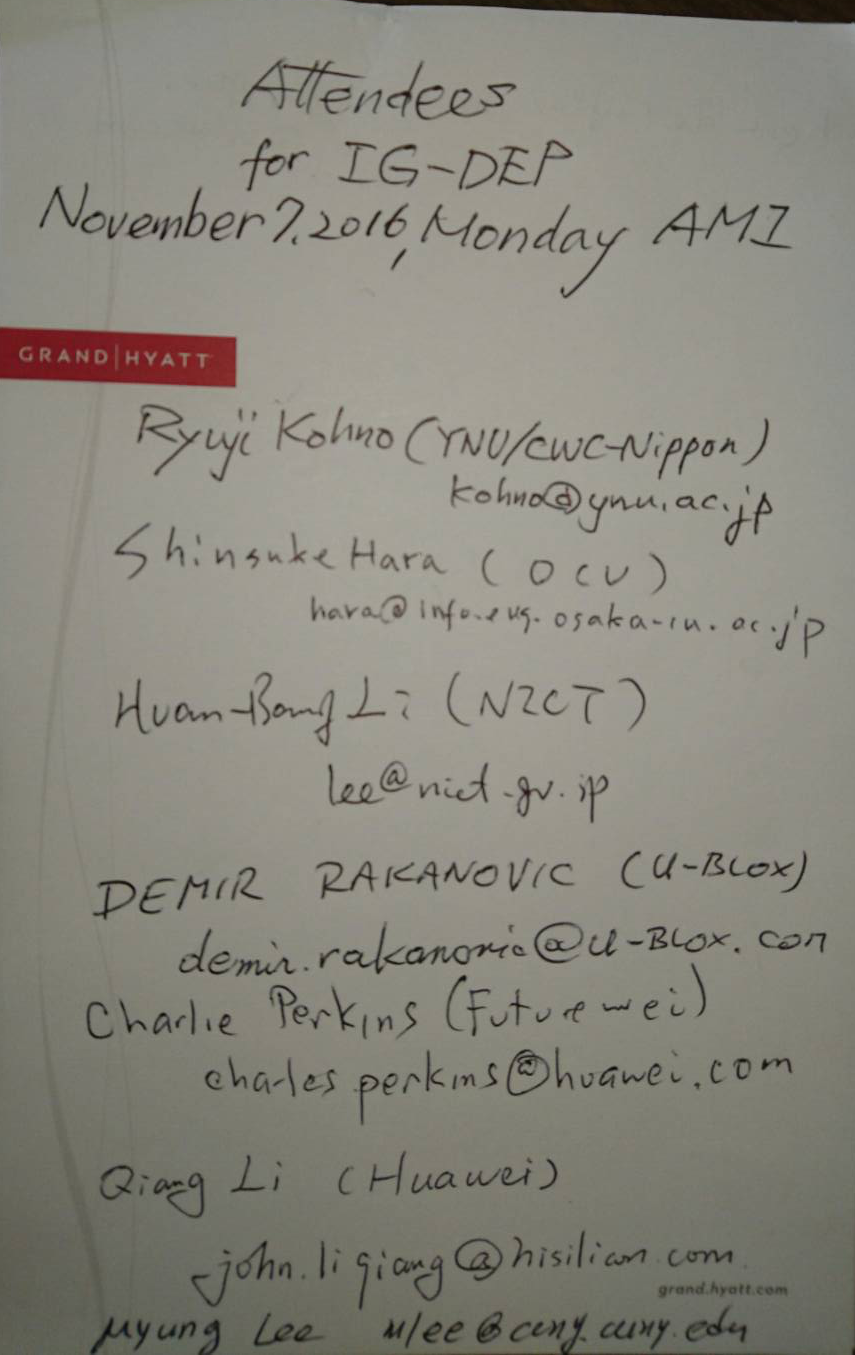 Attendees
for IG-DEP
November 7, 2016, Monday AM1
GRAND|HYATT
Ryuji Kohno (YNU/CWC-Nippon)
kohno@ynu.ac.jp
Shinsuke Hara (OCU)
hara@info.eng.osaka-cu.ac.jp
Huan-Bang Li (NICT)
lee@nict.go.jp
DEMIR RAKANOVIC (U-BLOX)
demir.rakanovic@U-BLOX.com
Charlie Perkins (Futurewei)
charles.perkins@huawei.com
Qiang Li (Huawei)
john.liqiang@hisilicon.com
grand.hyatt.com
Myung Lee mlee@ccny.cuny.edu